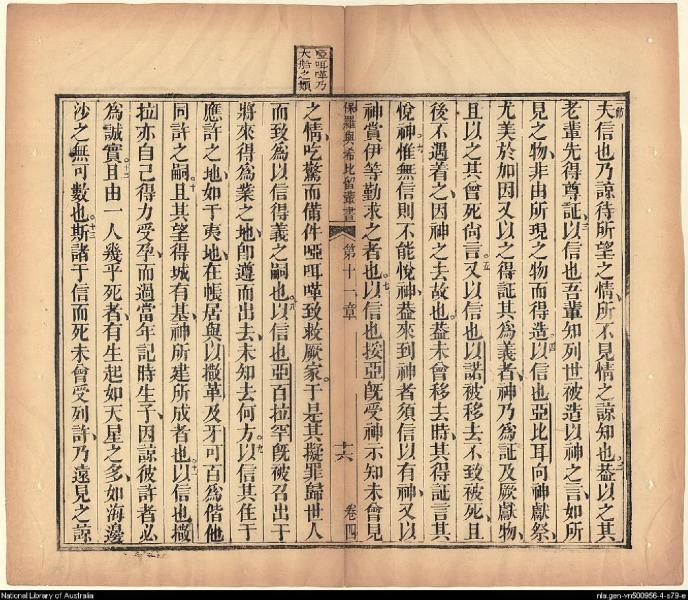 夫信也乃諒待所望之情所不見情之諒知也葢以之其
老輩先得尊証以信也吾輩知列世被造以神之言如所
見之物非由所現之物而得造以信也亞比耳向神獻祭
尤美於加因又以之得証其為義者神乃為証及厥獻物
且以之其曾死尚言又以信也以諾被移去不致被死且
後不遇着之因神之去故也葢未曾移去時其得証言其
悅神惟無信則不能悅神葢來到神者須信以有神又以
神賞伊等勤求之者也以信也挼亞旣受神示知未曾見
保羅與希比留叢書 第十一章 十六 卷四
啞咡嘩乃
大船之類
之情吃驚而備件啞咡嘩致救厥家于是其擬罪歸世人
而致為以信得義之嗣也以信也亞百拉罕旣被召出于
將來得為業之地卽遵而出去未知去何方以信其住于
應許之地如于夷地在帳居與以撒革及牙可百為偕他
同許之嗣且其望得城有基神所建所成者也以信也撒
拉亦自己得力受孕而過當年記時生子因諒彼許者必
為誠實且由一人幾乎死者有生起如天星之多如海邊
沙之無可數也斯諸于信而死未曾受列許乃遠見之諒
National Library of Australia
nla.gen-vn500956-4-s79-e